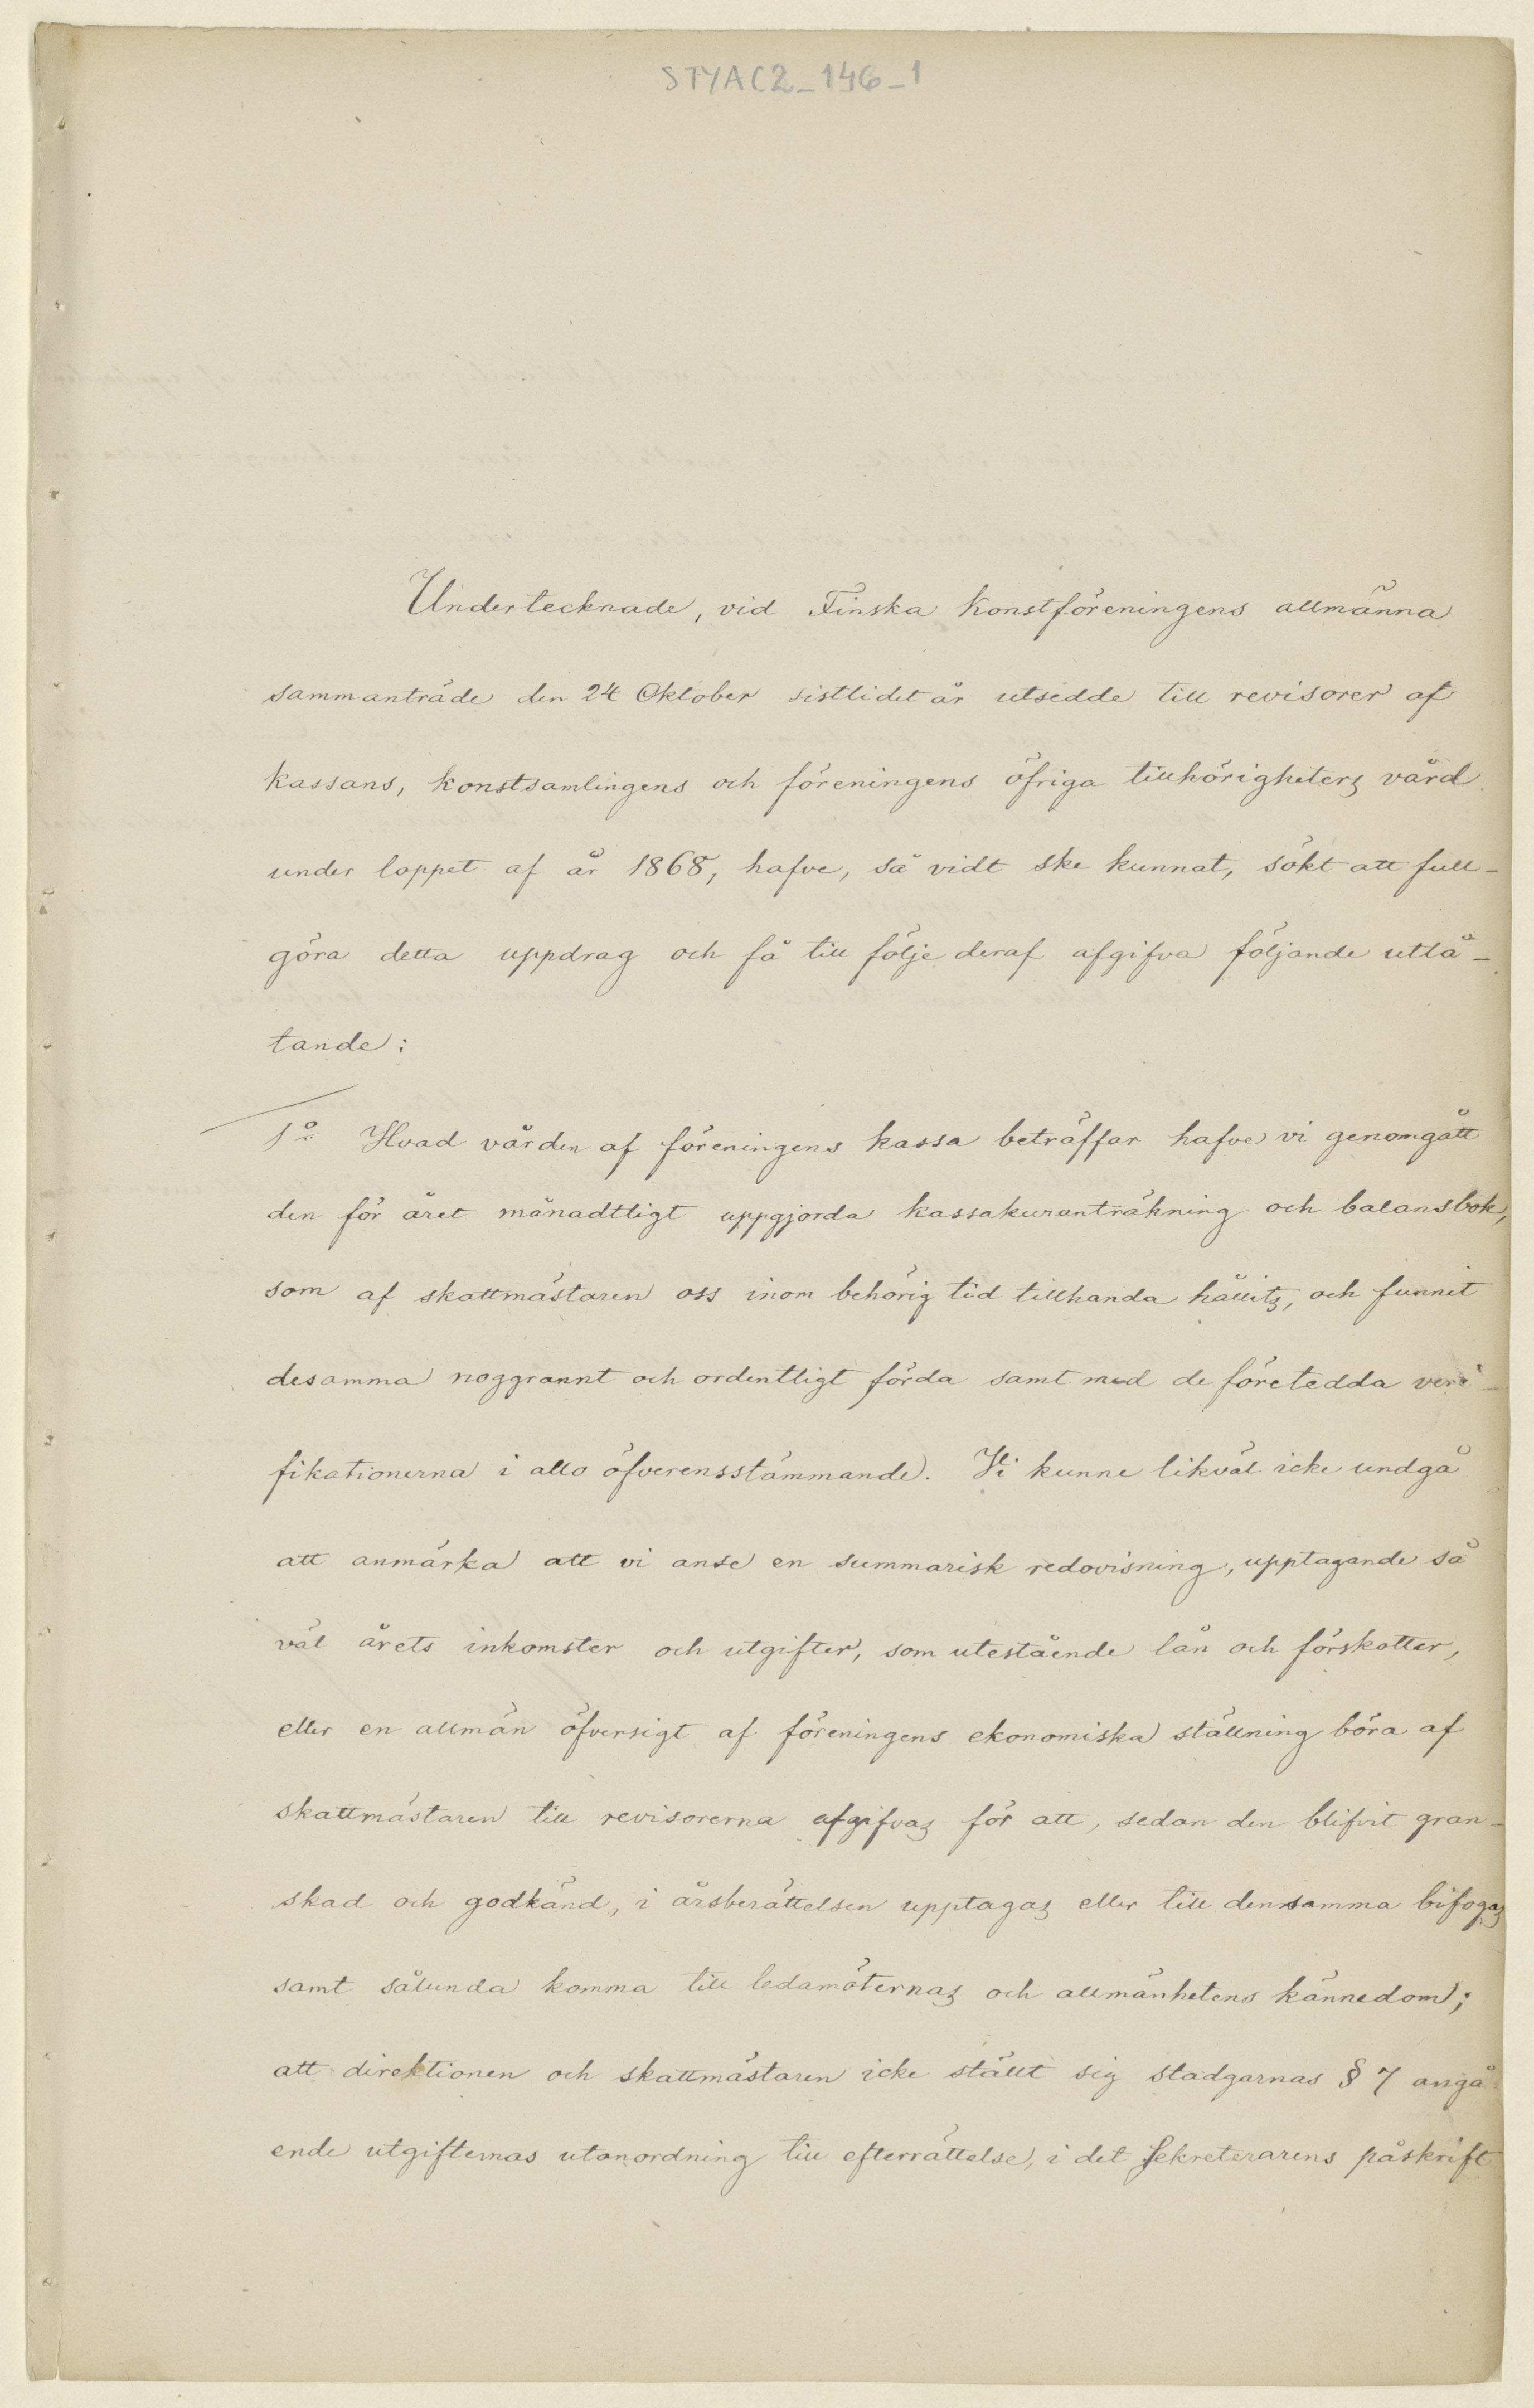 STYAC2_146_1
Undertecknade, vid Finska Konstföreningens allmänna
sammanträde den 24 Oktober sistlidet år utsedde till revisorer af
kassans, konstsamlingens och föreningens öfriga tillhörigheters vård
under loppet af år 1868, hafve, så vidt ske kunnat, sökt att full-
göra detta uppdrag och få till följe deraf afgifva följande utlå-
tande:
1o Hvad vården af föreningens kassa beträffar hafve vi genomgått
den för året månadtligt uppgjorda kassakuranträkning och balansbok,
som af skattmästaren oss inom behörig tid tillhanda hållits, och funnit
desamma noggrannt och ordentligt förda samt med de företedda veri-
fikationerna i allo öfverensstämmande. Vi kunne likväl icke undgå
att anmärka att vi anse en summarisk redovisning, upptagande så
väl årets inkomster och utgifter, som utestående lån och förskotter,
eller en allmän öfversigt af föreningens ekonomiska ställning böra af
skattmästaren till revisorerna afgifvas för att, sedan den blifvit gran-
skad och godkänd, i årsberättelsen upptagas eller till densamma bifogas
samt sålunda komma till ledamöternas och allmänhetens kännedom;
att direktionen och skattmästaren icke ställt sig stadgarnas § 7 angå
ende utgifternas utanordning till efterrättelse, i det Sekreterarens påskrift